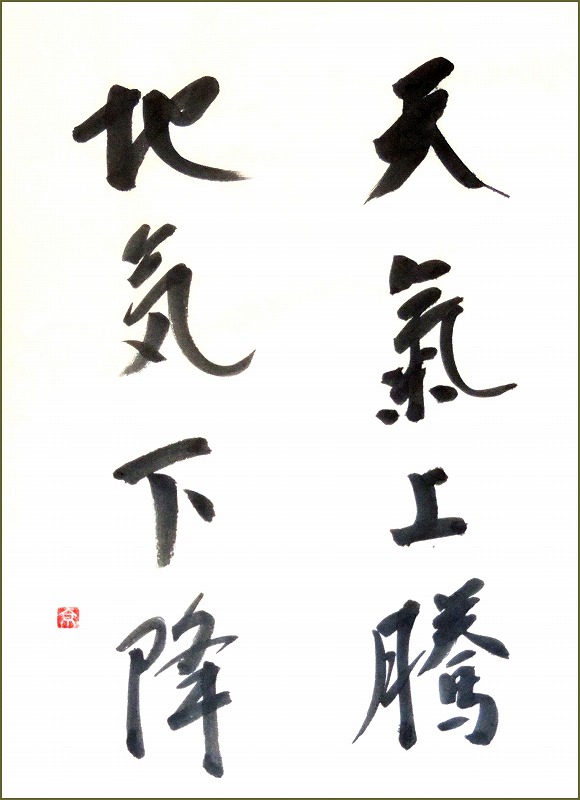 天氣上騰
地気下降